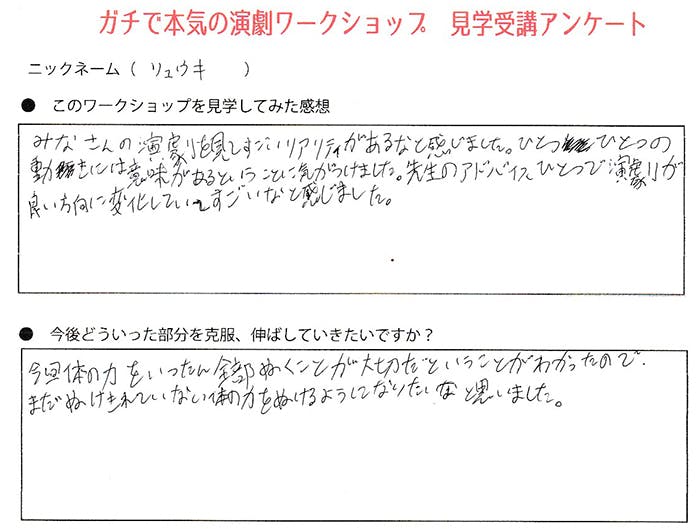 ガチで本気の演劇ワークショップ 見学受講アンケート
ニックネーム ( リュウキ )
● このワークショップを見学してみた感想
みなさんの演劇を見てすごいリアリティがあるなと感じました。ひとつひとつの
動きには意味があるということに気がつけました。先生のアドバイスひとつで演劇が
良い方向に変化していてすごいなと感じました。
● 今後どういった部分を克服、伸ばしていきたいですか？
今回体の力をいったん全部ぬくことが大切だということがわかったので、
まだぬけきれていない体の力をぬけるようになりたいなと思いました。